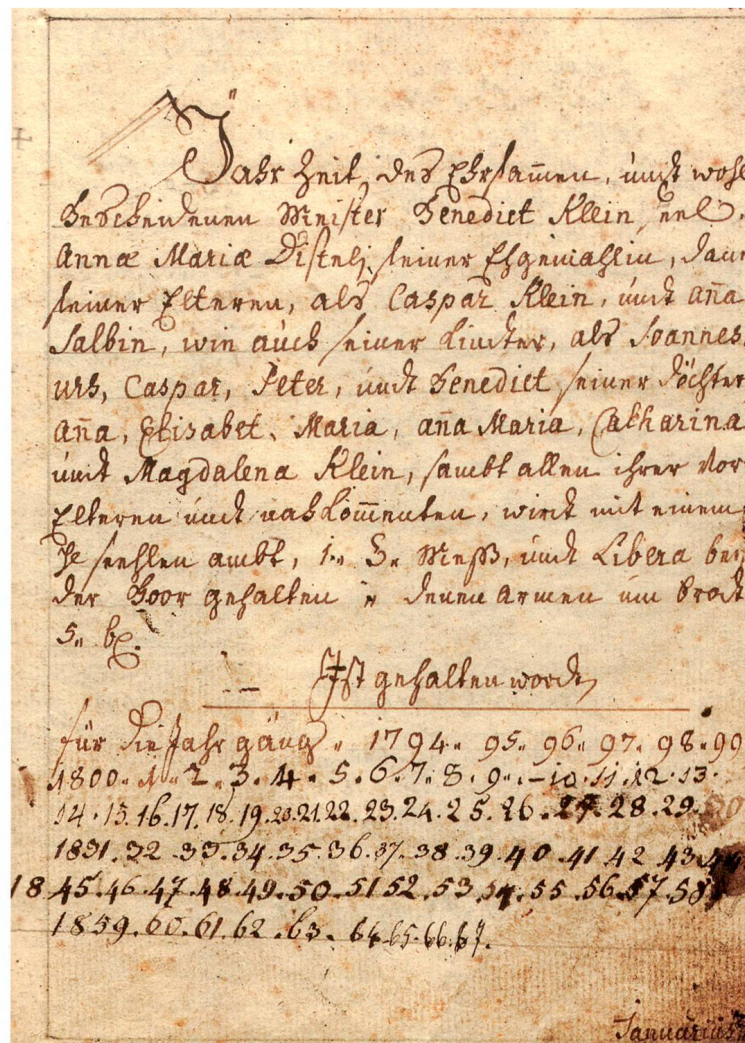 Jahr Zeit, des Ehrsam̄en, undt wohl
bescheidenen Meister Benedict Klein seel.
Annæ Mariæ Distelj, seiner Ehgemahlin, dann
seiner Elteren, als Caspar Klein, undt Aña
Salbin, wie auch seiner Kindter, als Joannes,
Urs, Caspar, Peter, undt Benedict, seiner Döchter
Aña, Elisabet, Maria, aña Maria, Catharina
undt Magdalena Klein, sambt allen ihrer Vor
Elteren undt nahkom̄enten, wirdt mit einem
seehlen ambt, 1. H. Mess, undt Libera bei
der Boor gehalten denen Armen um brodt
5. bz.
Ist gehalten wordt
für die Jahrgäng. 1794. 95. 96. 97. 98. 99
1800. 1. 2. 3. 4. 5. 6. 7. 8. 9. 10. 11. 12. 13.
14. 15. 16. 17. 18. 19. 20. 21. 22. 23. 24. 25. 26. 27. 28. 29. 30
1831. 32. 33. 34. 35. 36. 37. 38. 39. 40. 41 42 43. 44
18 45. 46. 47. 48. 49. 50. 51 52. 53 54. 55. 56. 57. 58
1859. 60. 61. 62. 63. 64 65. 66. 67.
Januarius